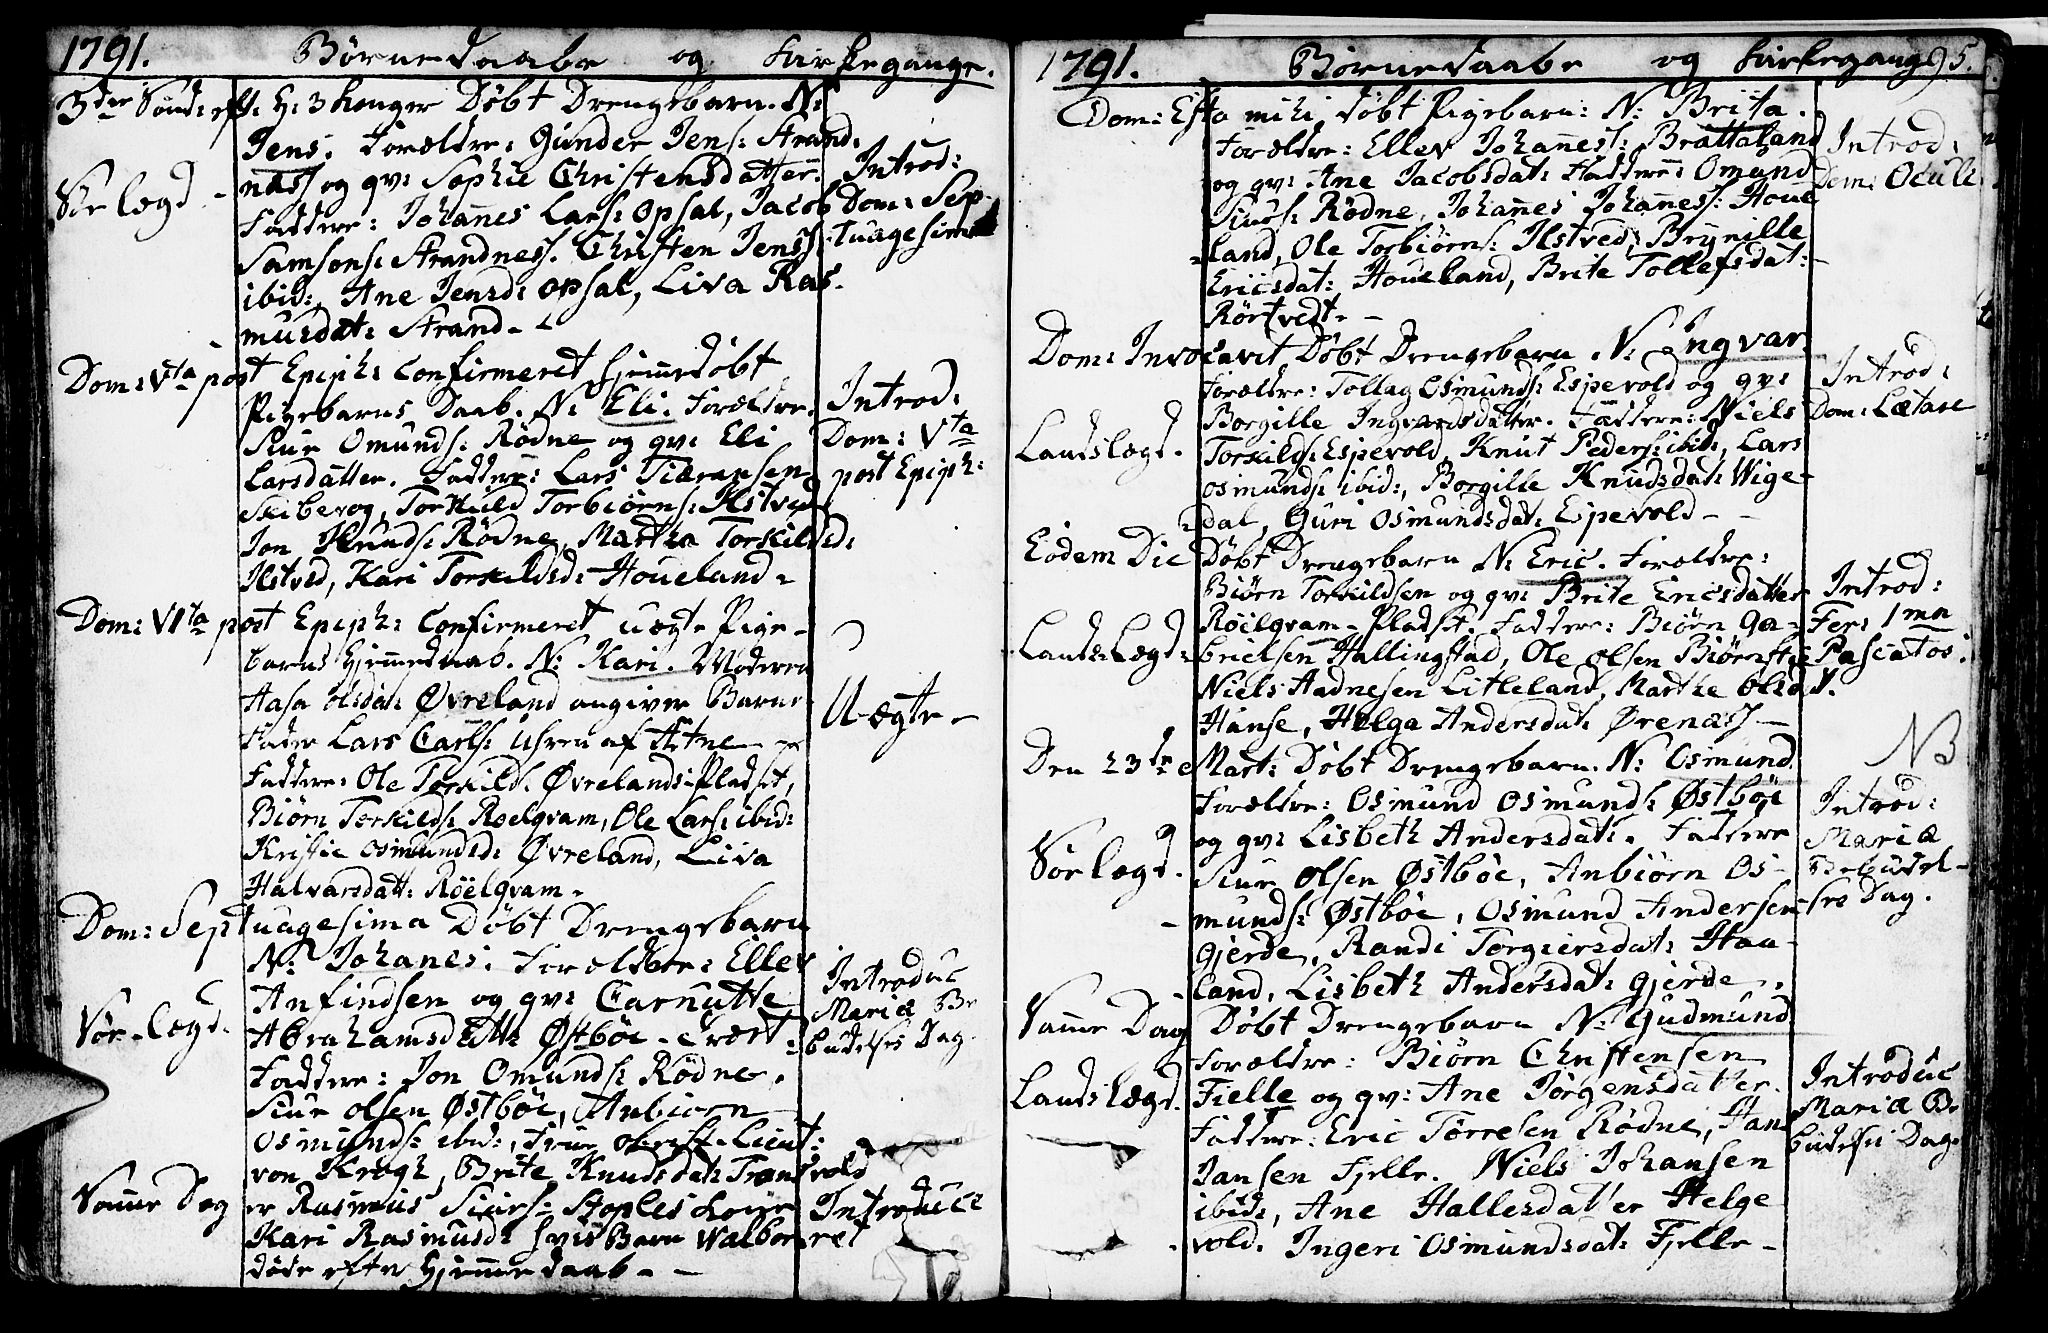 1791. Børnedaabe og Kirkegange.
3der Sønd: eft. H: 3 konger Døbt Drengebarn. N:
Jens. Forældre: Gunder Jens: Strand:
næss og qv: Sophie Christensdatter.
Faddere: Johanes Lars: Opsal, Jacob
Samsons: Strandness. Christen Jenss:
ibid:, Ane Jensd: Opsal, Liva Ras-
musdat: Strand.
Sørlægd -
Introd:
Dom: Sep-
tuagesima
Dom: Vta post Epiph: Confirmeret hjemedøbt
Pigebarns Daab. N: Eli. Forældre.
Siur Omunds: Rødne og qv: Eli
Larsdatter. Faddere: Lars
Skibevog, Torkild Torbiørns: Ilstved
Jon Knuds: Rødne, Martha Torkilsd:
Ilstved, Kari Torkildsd: Houeland.
Introd:
Dom: Vta
post Epiph:
Dom: VIta post Epiph: Confirmeret uægte Pige-
barns Hjemedaab. N: Kari. Moderen
Aasa Olsdat: Øvreland angiver Barne-
Fader Lars Carls: af Etne
Faddere: Ole Torkilds: Øvrelands-Pladset,
Biørn Torkilds: Røelqvam, Ole Lars: ibid:
Kristie Osmundsd: Øvreland, Liva
Halvarsdatt: Röelqvam.
Uægte
Dom: Septuagesima Døbt Drengebarn
N: Johanes. Forældre: Ellev
Anfindsen og qv: Carnutte
Abrahamsdatt: Østbøe
Faddere: Jon Omunds: Rødne,
Siur Olsen Østbøe, Anbiørn
Osmunds: ibid:, Frue Lieut:
von Krogh, Brite Knudsdat:
Sør-lægd.
Introduc
Mariæ Be
budelses Dag.
Same Dag er Rasmus Siurs: Staples Kone
Kari Rasmusd: hvis Barn Walbor
døde efter Hjemmedaab.
Introduce
ret
1791. Børnedaabe og Kirkegang 95.
Dom: Esto mihi døbt Pigebarn: N: Brita.
Forældre: Ellev Johanes: Brattaland
og qv: Ane Jacobsdat: Faddere: Omund
Siurs: Rødne, Johanes Johaness: Houe
land, Ole Torbiørns: Ilstved, Brynille
Ericsdat: Houeland, Brite Tollefsdat:
Rørtvedt.
Introd:
Dom: Oculi
Dom: Invocavit Døbt Drengebarn. N: Ingvar
Forældre: Tollag Osmunds: Espevold og qv:
Borgille Ingvardsdatter. Faddere: Niels
Torkilds: Espevold, Knut Peders: ibid:, Lars
Osmunds: ibid:, Borgille Knudsdat: Wige-
dal, Guri Osmundsdat: Espevold
Landslægd.
Introd:
Dom: Lætare
Eodem Die Døbt Drengebarn N: Eric. Forældre:
Biørn Torkildsen og qv: Brite Ericsdatter
Røilqvam-Pladset. Faddere: Biørn Ga-
brielsen Hallingstad, Ole Olsen
Niels Aadnesen Litleland, Marthe Olsd.
Hanse, Helga Andersdat: Ørenæss
Lands Lægd
Introd:
Fer: 1ma
Pascatos.
Den 23de Mart: Døbt Drengebarn. N: Osmund
Forældre: Osmund Osmunds: Østbøe
og qv: Lisbeth Andersdat:. Faddere
Siur Olsen Østbøe, Anbiørn Os-
munds: Østbøe, Osmund Andersen
Gjerde, Randi Torgiersdat: Haa-
land, Lisbeth Andersdat: Gjerde.
Sør lægd.
NB
Introd:
Mariæ
Bebudel-
ses Dag.
Samme Dag Døbt Drengebarn N: Gudmund
Forældre: Biørn Christensen
Fielle og qv: Ane Jörgensdatter.
Faddere: Eric Torresen Rødne, Han
Jansen Fjelle. Niels Johansen
ibid:, Ane Hallesdatter Helge
vold. Ingeri Osmundsdat: Fjelle
Lands Lægd.
Introduc
Mariæ Be
budelse Dag